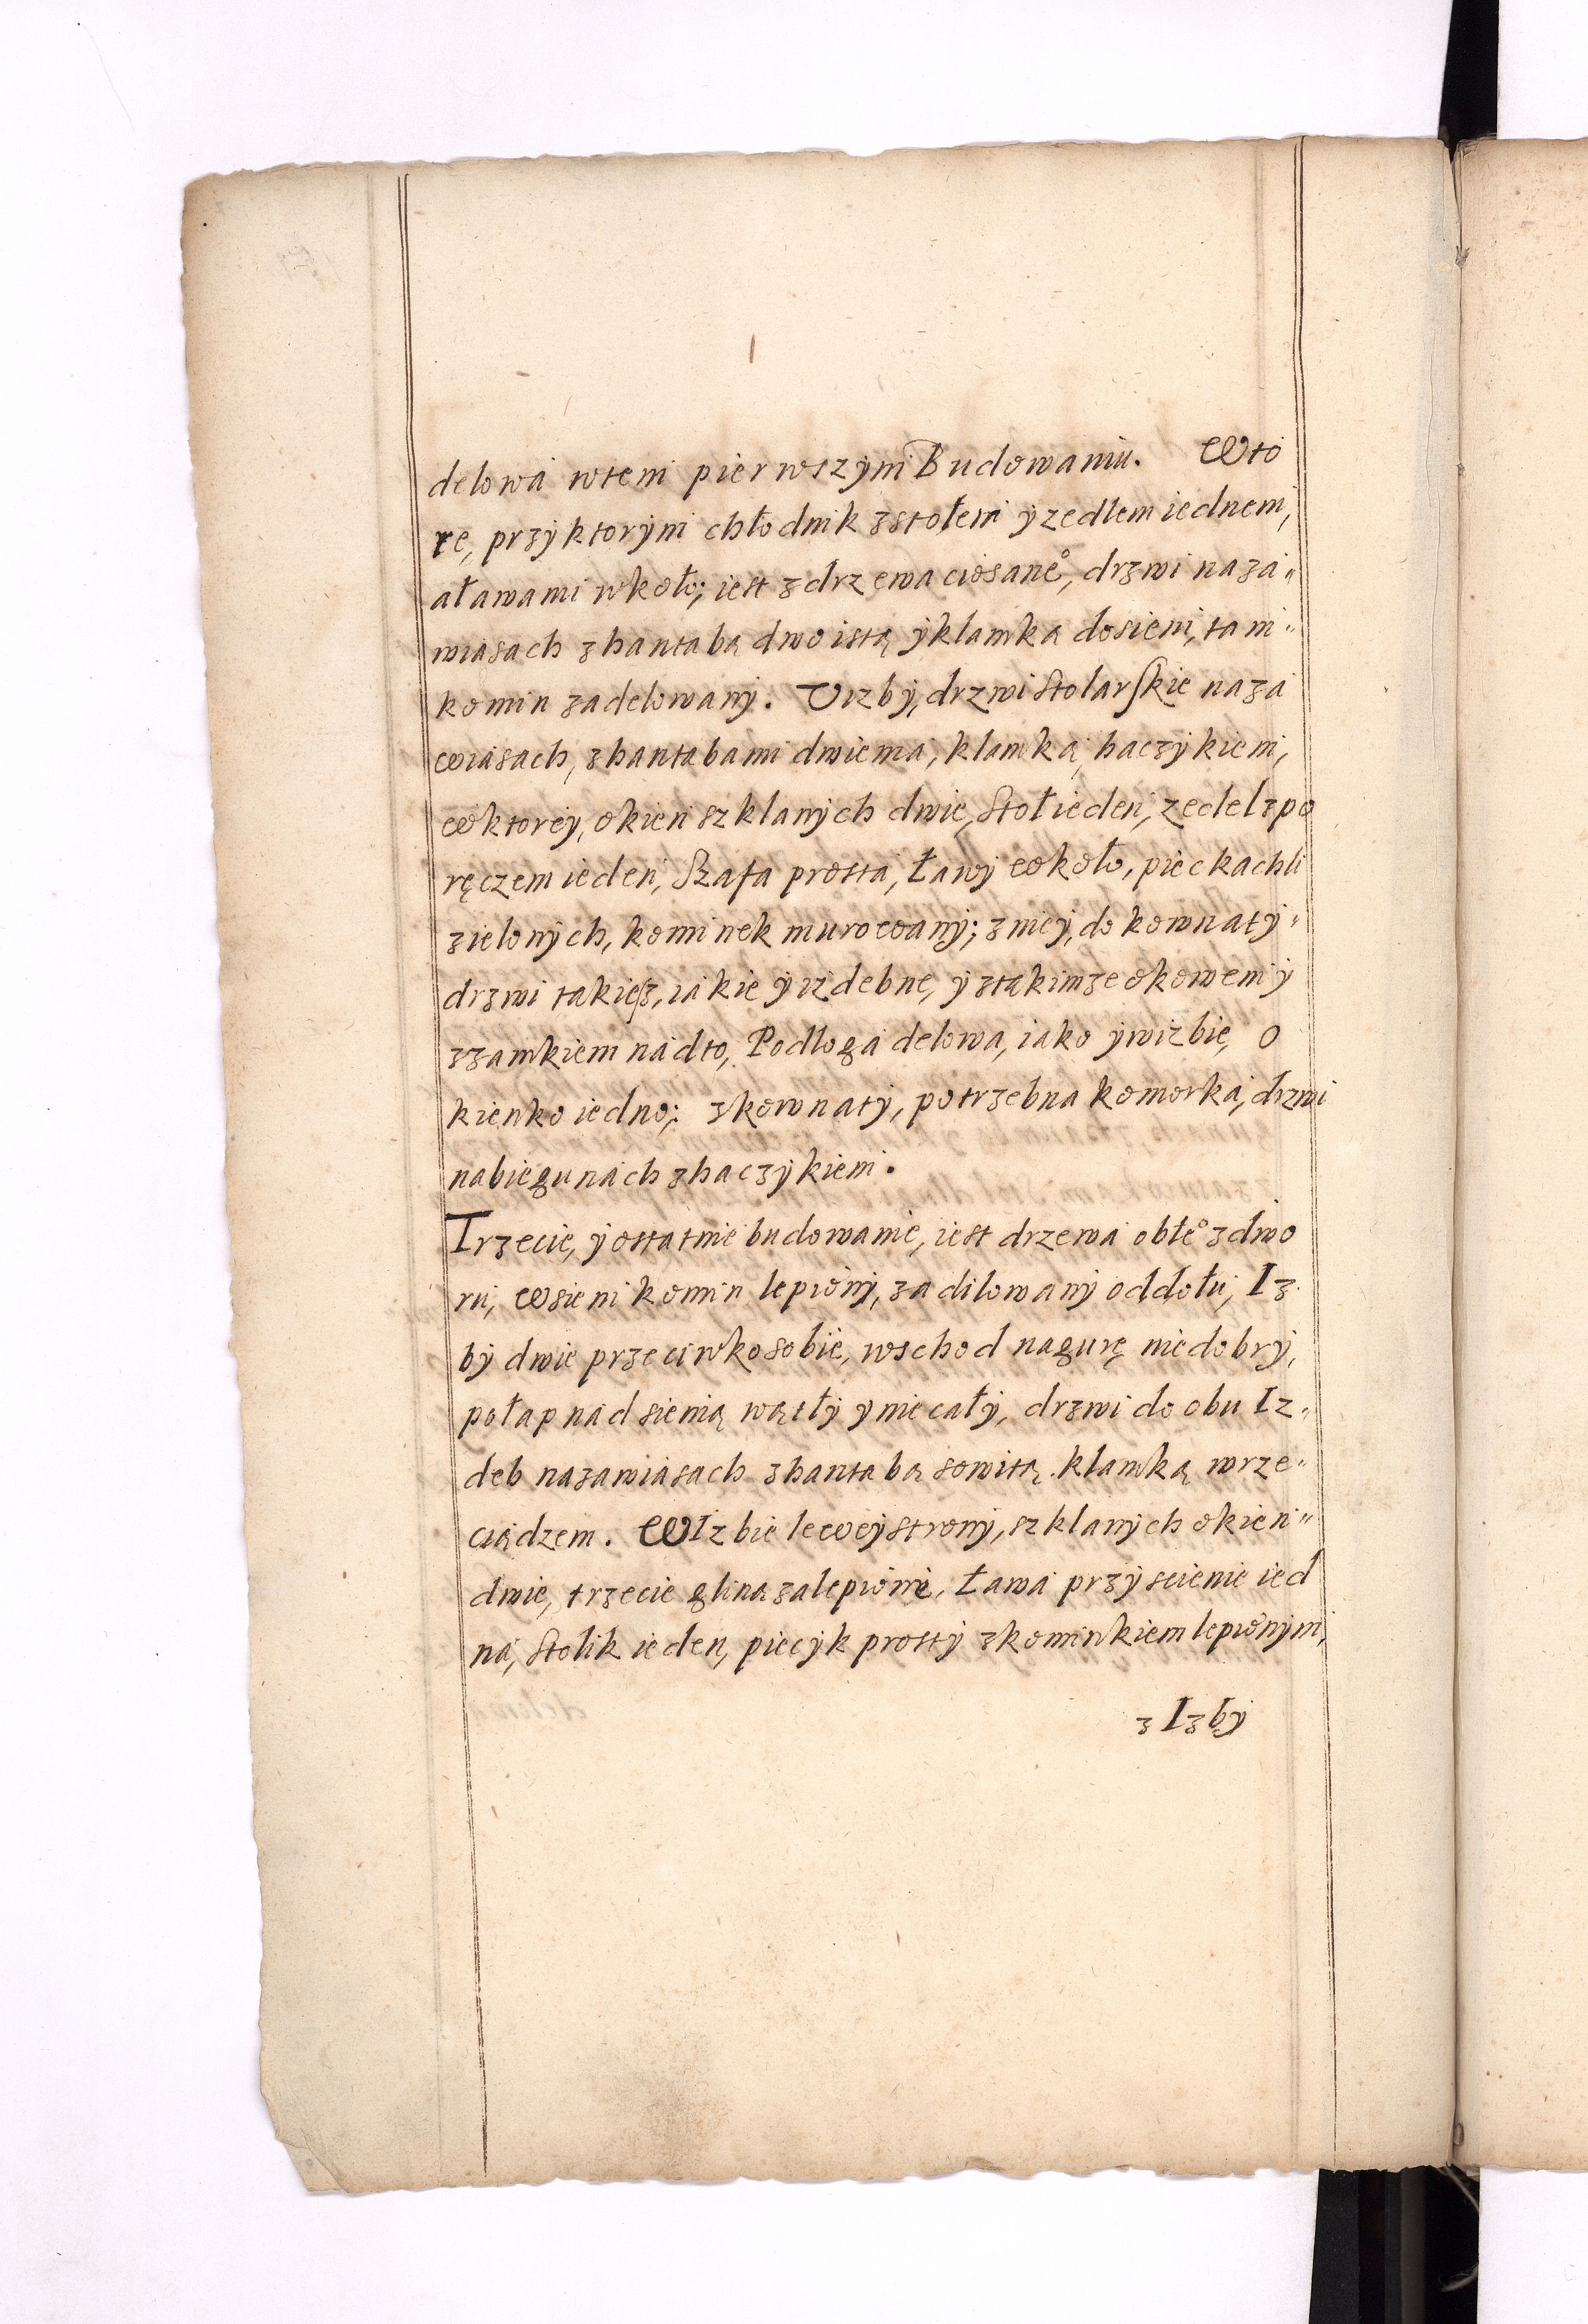 delowa wtem pierwszym Budowaniu. Wto
re, przyktorym chłodnik zstołem y zedlem iednem,
aławami wkoło; iest zdrzewa ciosane͛, drzwi naza„
wiasach zhantabą dwoistą yklamka dosieni, tam„
komin zadelowany. Uizby, drzwi Stolarskie naza
wiasach, zhantabami dwiema, klamką, haczykiem,
wktorey, okien szklanych dwie, Stoł ieden, zedel zpo
ręczem ieden, Szafa prosta, Ławy wkoło, piec kachli
zielonych, kominek murowany; zniey, do kownaty„
drzwi takiesz, iakie y izdebne, y ztakimze okowem y
zzamkiem nadto, Podloga delowa, iako ywizbie, o
kienko iedno; zkownaty, potrzebna komorka, drzwi
nabiegunach zhaczykiem.
Trzecie, y ostatnie budowanie, iest drzewa obłe° zdwo
ru, wsieni komin lepiony, zadilowany oddołu, Iz
by dwie przeciwko sobie, wschod nagurę niedobry,
połap nad sienią wątły y niecały, drzwi do obu Iz„
deb nazawiasach zhantabą sowitą klamką wrze„
ciądzem. WIzbie lewey strony, szklanych okien„
dwie, trzecie gliną zalepione, Ława przyscienie ied
na, Stolik ieden, piecyk prosty zkominkiem lepionym,
z Izby